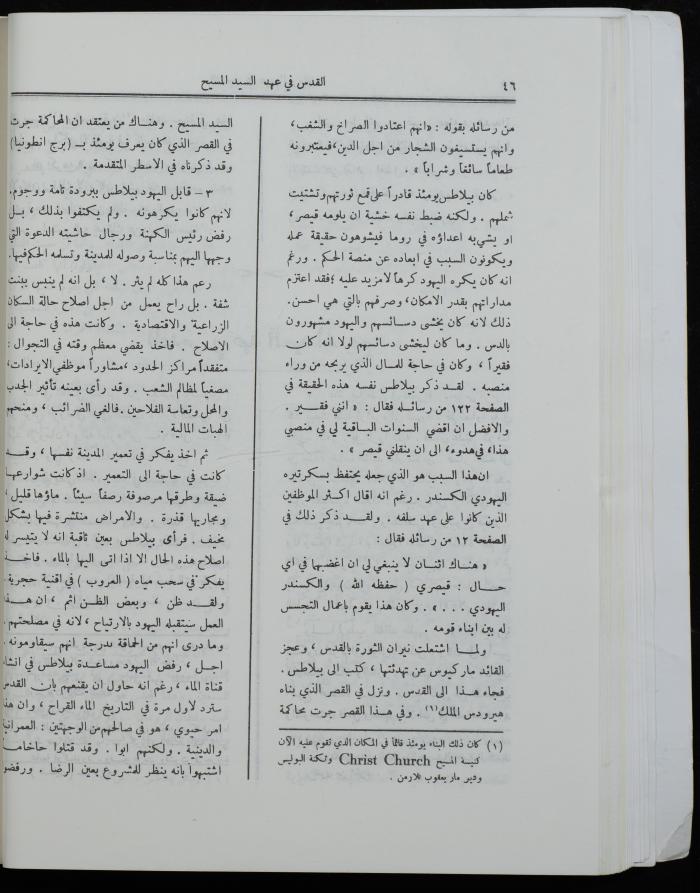 ٤٦
القدس في عهد السيد المسيح
من رسائله بقوله : «انهم اعتادوا الصراخ والشغب،
وانهم يستسيغون الشجار من اجل الدين،فيعتبرونه
طعاماً سائغاً وشراباً » .
كان بيلاطس يومئذ قادراً على قمع ثورتهم وتشتيت
شملهم . ولكنه ضبط نفسه خشية ان يلومه قيصر،
او يشي به اعداؤه في روما فيشوهون حقيقة عمله
ويكونون السبب في ابعاده عن منصة الحكم . ورغم
انه كان يكره اليهود كرهاً لامزيد عليه ؛ فقد اعتزم
مداراتهم بقدر الامكان، وصرفهم بالتي هي احسن.
ذلك لانه كان يخشى دسائسهم واليهود مشهورون
بالدس . وما كان ليخشى دسائسهم لولا انه كان
فقيراً ، وكان في حاجة للمال الذي يربحه من وراء
منصبه . لقد ذكر بيلاطس نفسه هذه الحقيقة في
الصفحة ١٢٢ من رسائله فقال : « انني فقير .
والافضل ان اقضي السنوات الباقية لي في منصبي
هذا، في هدوء، الى ان ينقلني قيصر » .
ان هذا السبب هو الذي جعله يحتفظ بسكرتيره
اليهودي الكسندر . رغم انه اقال اكثر الموظفين
الذين كانوا على عهد سلفه . ولقد ذكر ذلك في
الصفحة ١٢ من رسائله فقال :
« هناك اثنان لا ينبغي لي ان اغضبهما في اي
حال : قيصري ( حفظه الله ) والكسندر
اليهودي . . . » . وكان هذا يقوم باعمال التجسس
له بين ابناء قومه .
ولما اشتعلت نيران الثورة بالقدس ، وعجز
القائد ماركيوس عن تهدئتها ، كتب الى بيلاطس .
فجاء هذا الى القدس . ونزل في القصر الذي بناه
هيرودس الملك(١) . وفي هذا القصر جرت محاكمة
(١) كان ذلك البناء يومئذ قائماً في المكان الذي تقوم عليه الآن
كنيسة المسيح Christ Church وثكنة البوليس
ودير مار يعقوب للارمن .
السيد المسيح . وهناك من يعتقد ان المحاكمة جرت
في القصر الذي كان يعرف يومئذ بـ (برج انطونيا)
وقد ذكرناه في الاسطر المتقدمة .
٣ – قابل اليهود بيلاطس ببرودة تامة ووجوم.
لانهم كانوا يكرهونه . ولم يكتفوا بذلك ، بل
رفض رئيس الكهنة ورجال حاشيته الدعوة التي
وجهها اليهم بمناسبة وصوله للمدينة وتسلمه الحكم فيها.
رغم هذا كله لم يثر . لا ، بل انه لم ينبس ببنت
شفة . بل راح يعمل من اجل اصلاح حالة السكان
الزراعية والاقتصادية . وكانت هذه في حاجة الى
الاصلاح . فاخذ يقضي معظم وقته في التجوال :
متفقداً مراكز الحدود ،مشاوراً موظفي الايرادات،
مصغياً لمظالم الشعب . وقد رأى بعينه تأثير الجدب
والمحل وتعاسة الفلاحين . فالغي الضرائب ، ومنحهم
الهبات المالية .
ثم اخذ يفكر في تعمير المدينة نفسها ، وقد
كانت في حاجة الى التعمير . اذ كانت شوارعها
ضيقة وطرقها مرصوفة رصفاً سيئاً . ماؤها قليل ،
ومجاريها قذرة . والامراض منتشرة فيها بشكل
مخيف . فرأى بيلاطس بعين ثاقبة انه لا يتيسر له
اصلاح هذه الحال الا اذا اتى اليها بالماء . فاخذ
يفكر في سحب مياه ( العروب ) في اقنية حجرية.
ولقد ظن ، وبعض الظن اثم ، ان هذا
العمل سيتقبله اليهود بالارتياح ، لانه في مصلحتهم.
وما درى انهم من الحماقة بدرجة انهم سيقاومونه.
اجل ، رفض اليهود مساعدة بيلاطس في انشاء
قناة الماء ، رغم انه حاول ان يقنعهم بان القدس
سترد لأول مرة في التاريخ الماء القراح ، وان هذا
امر حيوي ، هو في صالحهم من الوجهتين : العمرانية
والدينية . ولكنهم ابوا . وقد قتلوا حاخاماً
اشتبهوا بانه ينظر للمشروع بعين الرضا . ورفضوا